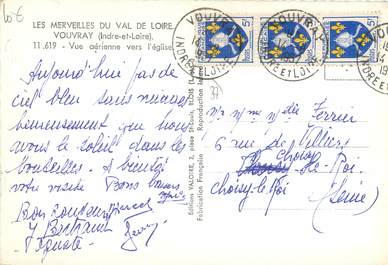 10€
LES MERVEILLES DU VAL DE LOIRE
VOUVRAY (Indre-et-Loire).
11.619 - Vue aérienne vers l'église
VOUVRAY
INDRE ET LOIRE
VOUVRAY
INDRE ET LOIRE
Aujourd'hui pas de
ciel bleu sans nuages
heureusement que nous
avons le soleil dans les
bouteilles. A bientôt
votre visite Bons baisers
Bon souvenir Marcel
Y Bertrand
Editions VALOIRE, 2, place St-Louis, BLOIS
Fabrication Française
Reproduction
37
6 rue de Villiers
Choisy-le-Roi
Choisy le Roi
(Seine)